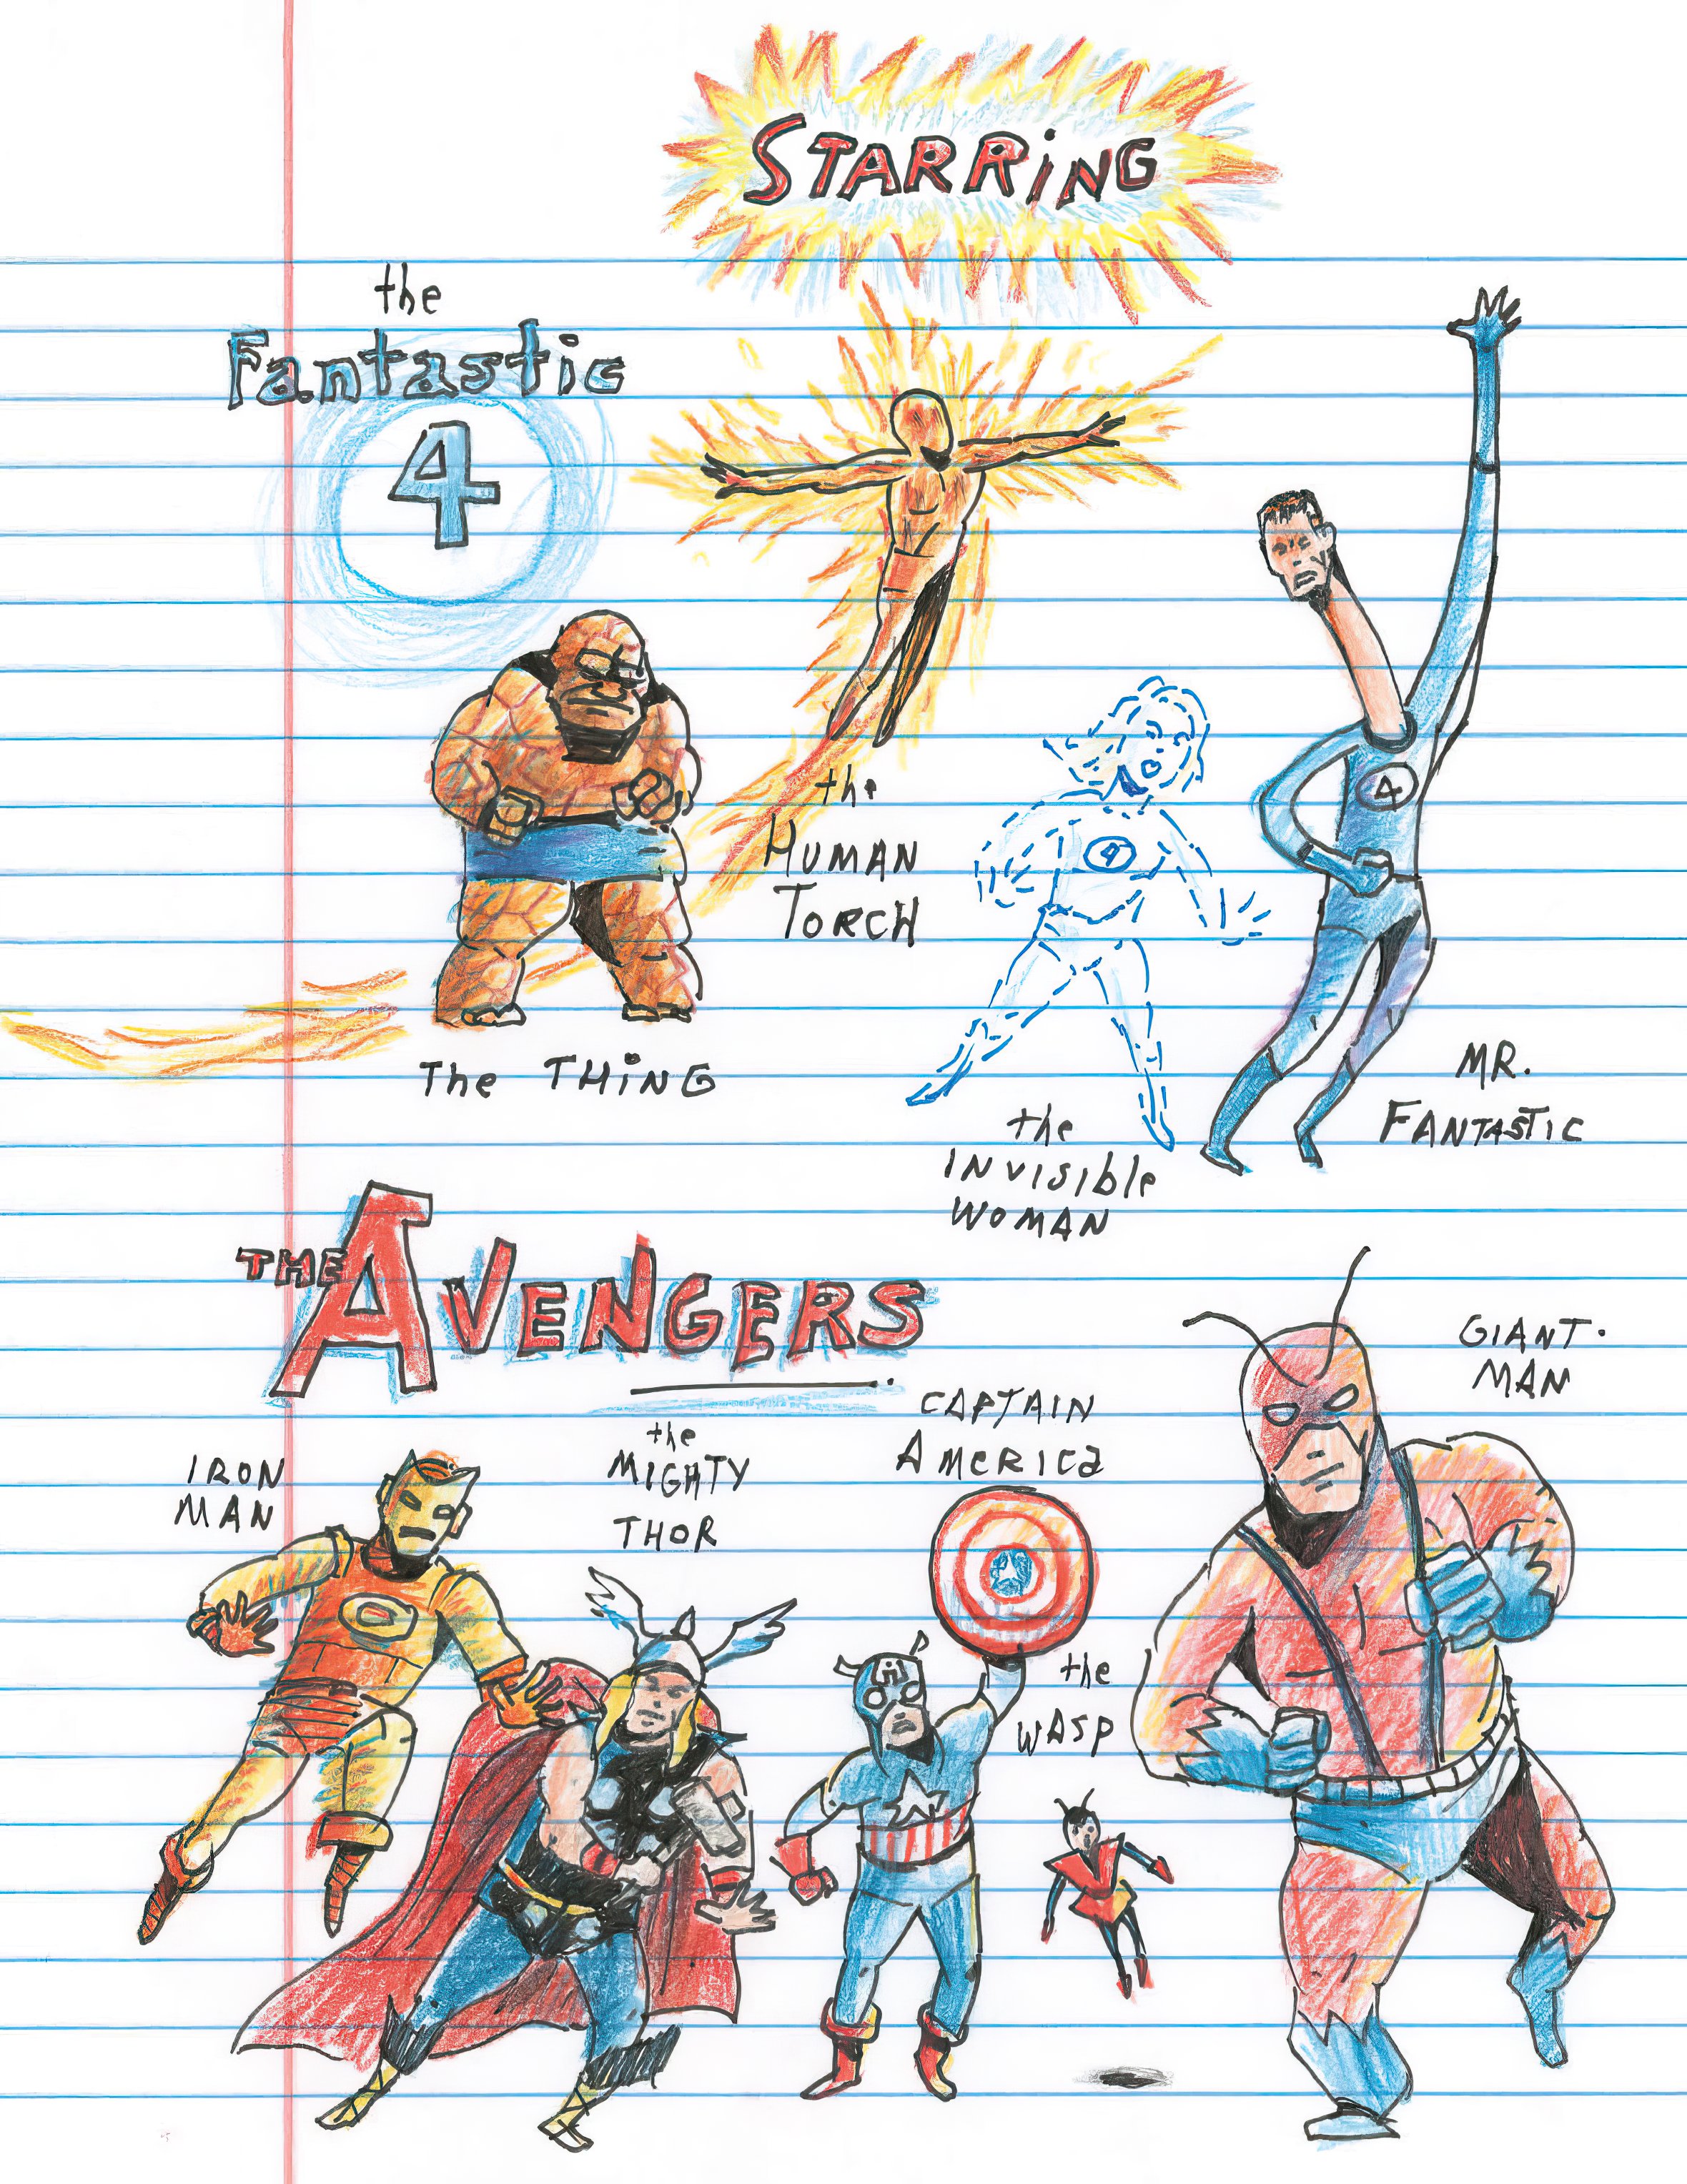 STARRiNG
the
Fantastic
4
the
HUMAN
TORCH
4
4
The THiNG
MR.
FANTASTIC
the
INVISIble
WOMAN
THE AVENGERS
GIANT-
MAN
CAPTAIN
AMERICa
the
MIGHTY
THOR
IRON
MAN
the
WASP